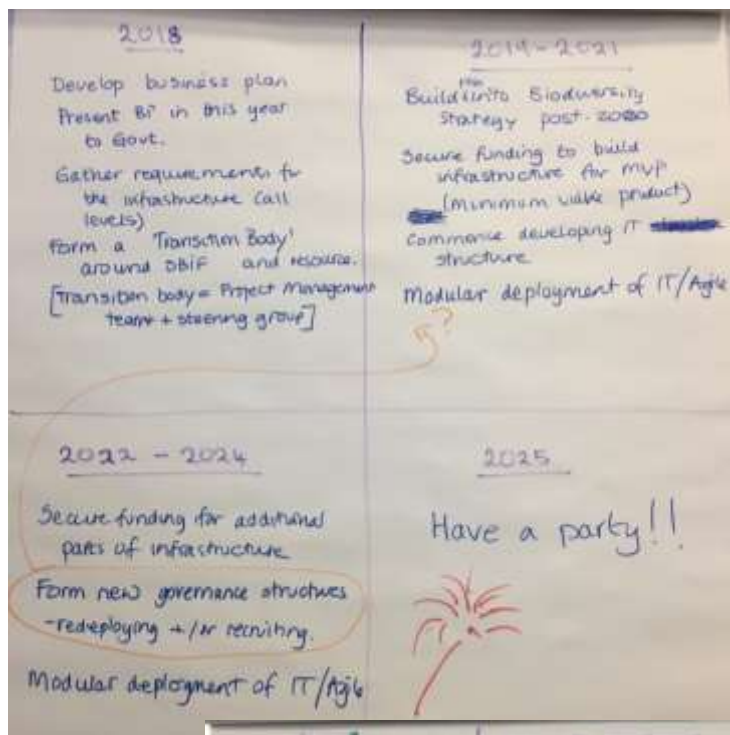 2018
Develop business plan
Present BP in this year
to Govt.
Gather requirements for
the infrastructure (all
levels)
Form a 'Transition Body'
around SBIF and resource.
[Transition body = Project Management
team + steering group]
2019-2021
Build into Biodiversity
Strategy post-2020
Secure funding to build
infrastructure for MVP
(minimum viable product)
Commence developing IT
structure
Modular deployment of IT/Agile
?
2022 - 2024
Secure funding for additional
parts of infrastructure
Form new governance structures
-redeploying +/or recruiting.
Modular deployment of IT/Agile
2025
Have a party!!